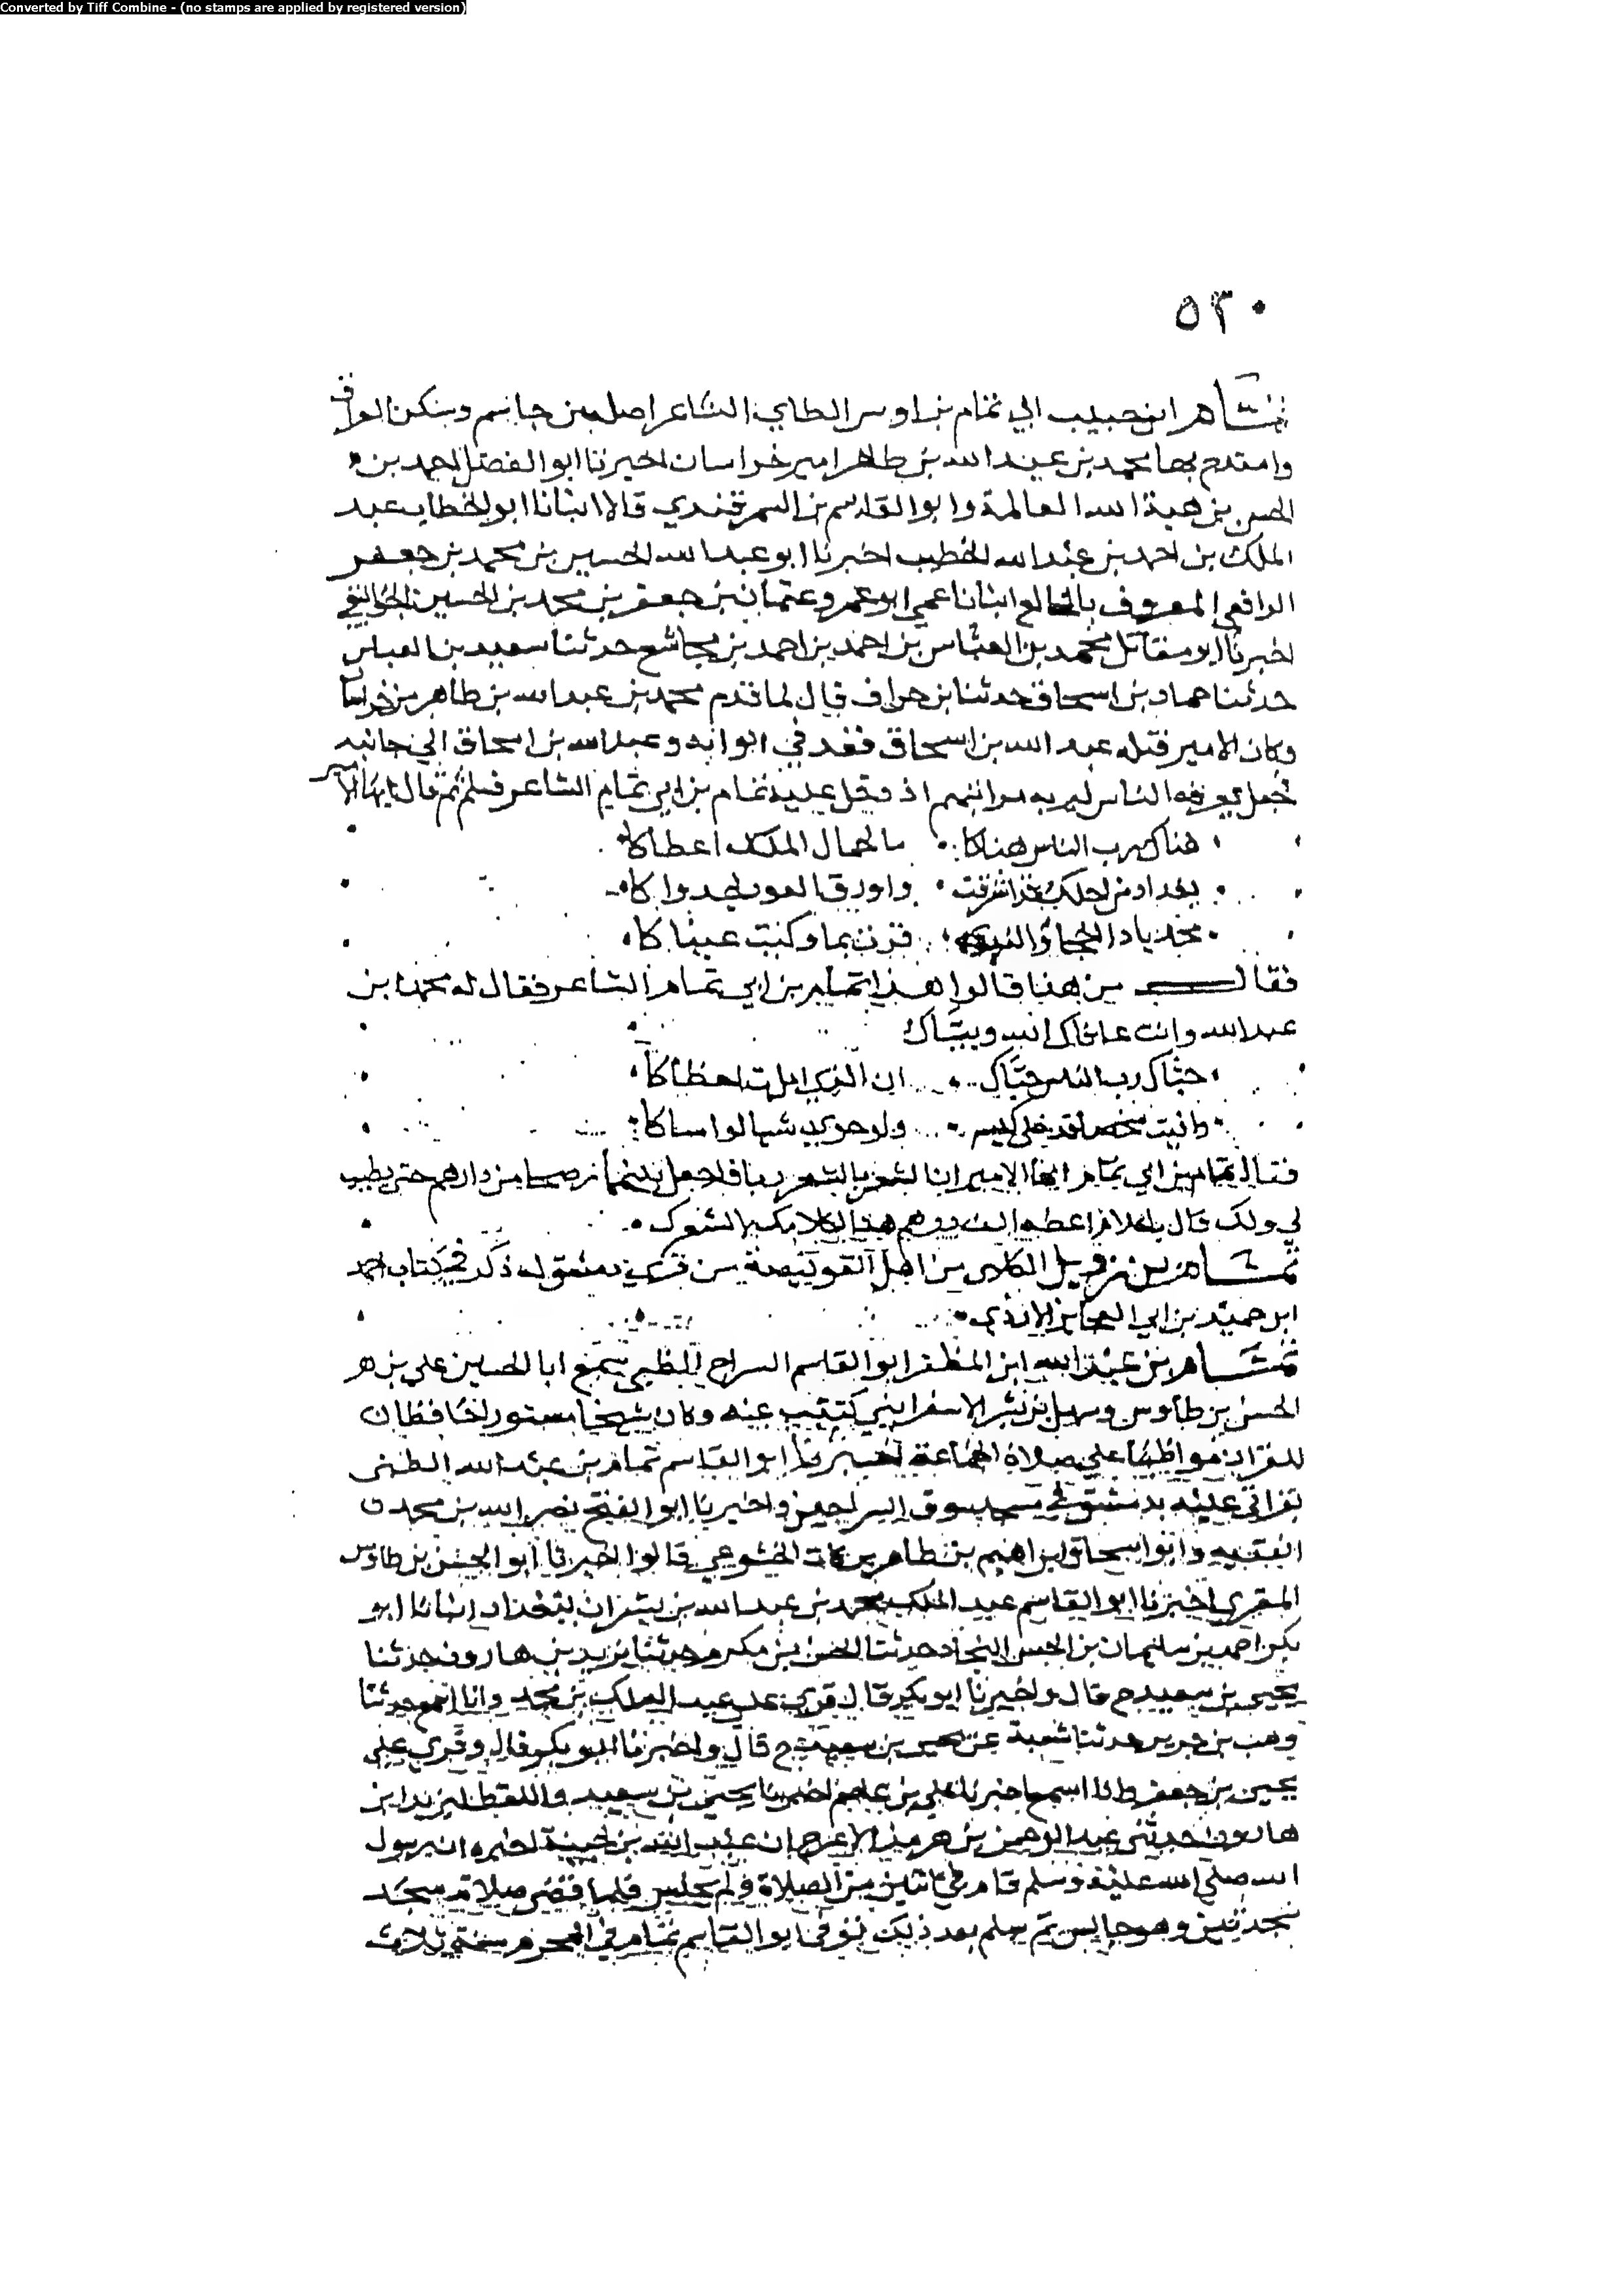 Converted by Tiff Combine - (no stamps are applied by registered version)
٥٣٠
تمام ابن حبيب ابي تمام بن اوس الطاي الشاعر اصله من جاسم وسكن العراق
وامتدح بها محمد بن عبد الله بن طاهر امير خراسان اخبرنا ابو الفضل احمد بن
الحسن بن هبة الله العالمة وابو القاسم بن السمرقندي قالا انبانا ابو الخطاب عبد
الملك بن احمد بن عبد الله الخطيب اخبرنا ابو عبد الله الحسين بن محمد بن جعفر
الرافعي المعروف بالخالع انبانا عمي ابو عمرو عثمان بن جعفر بن محمد بن الحسين الجواليقي
اخبرنا ابو مقاتل محمد بن العباس بن احمد بن احمد بن مجاشع حدثنا سعيد بن العباس
حدثنا حماد بن اسحاق حدثنا ابن حراف قال لما قدم محمد بن عبد الله بن طاهر من خراسان
وكان الامير قبله عبد الله بن اسحاق فقعد في ايوانه وعبد الله بن اسحاق الي جانبه
فجعل يعرفه الناس ليريه مراتبهم اذ دخل عليه تمام بن ابي تمام الشاعر فسلم ثم قال ايها الامير
هناك رب الناس هناكا ما لجمال الملك اعطاكا
بغداد من اجلك قد اشرقت واورق العود لجدواكا
محمد يا ذا الحجا والندي قرت بما وكنت عيناكا
فقال من هذا قالوا هذا تمام بن ابي تمام الشاعر فقال له محمد ابن
عبد الله وانت عافاك الله وبياك
حياك رب الناس حياك ان الذي املت اخطاكا
وانيت شخصا قد خلي كيسه ولو حوي شيا لواساكا
فقال تمام بن ابي تمام ايها الامير ان الشعر بالشعر ربا فاجعل بينهما رضخا من دراهم حتي يطيب
لي ولك قال يا غلام اعطه الف درهم هذا لكلامك لا لشعرك
تمام بن نزفيل الكلابي من اهل القوينصة من قري دمشق له ذكر في كتاب احمد
ابن حميد بن ابي العجايز الازدي
تمام بن عبد الله ابن المظفر ابو القاسم السراج الظني سمع ابا الحسين علي بن هر
الحسن بن طاوس وسهل بن بشر الاسفرايني كتبت عنه وكان شيخا مستورا حافظا ن
للقران مواظبا علي صلاة الجماعة اخبرنا ابو القاسم تمام بن عبد الله الظني
بقراتي عليه بدمشق في مسجد سوق السراجين واخبرنا ابو الفتح نصر الله بن محمد ن
الفقيه وابو اسحاق ابراهيم بن طاهر بن بركات الخشوعي قالوا اخبرنا ابو الحسن بن طاوس
المقري اخبرنا ابو القاسم عبد الملك محمد بن عبد الله بن بشران ببغداد انبانا ابو
بكر احمد بن سليمان بن الحسن النجاد حدثنا الحسن بن مكرم حدثنا يزيد بن هارون حدثنا
يحيى بن سعيد ح قال واخبرنا ابو بكر قال قري علي عبد الملك بن محمد وانا اسمع حدثنا
وهب بن جرير حدثنا شعبة عن يحيى بن سعيد ح قال واخبرنا ابو بكر قال وقري علي
يحيى بن جعفر وانا اسمع اخبرنا علي بن عاصم اخبرنا يحيى بن سعيد واللفظ ليزيد ابن
هارون حدثني عبد الرحمن بن هرمز الاعرج ان عبد الله بن بحينة اخبره ان رسول
الله صلي الله عليه وسلم قام في ثنتين من الصلاة ولم يجلس فلما قضى صلاته سجد
سجدتين وهو جالس ثم سلم بعد ذلك توفى ابو القاسم تمام في المحرم سنة ثلاث